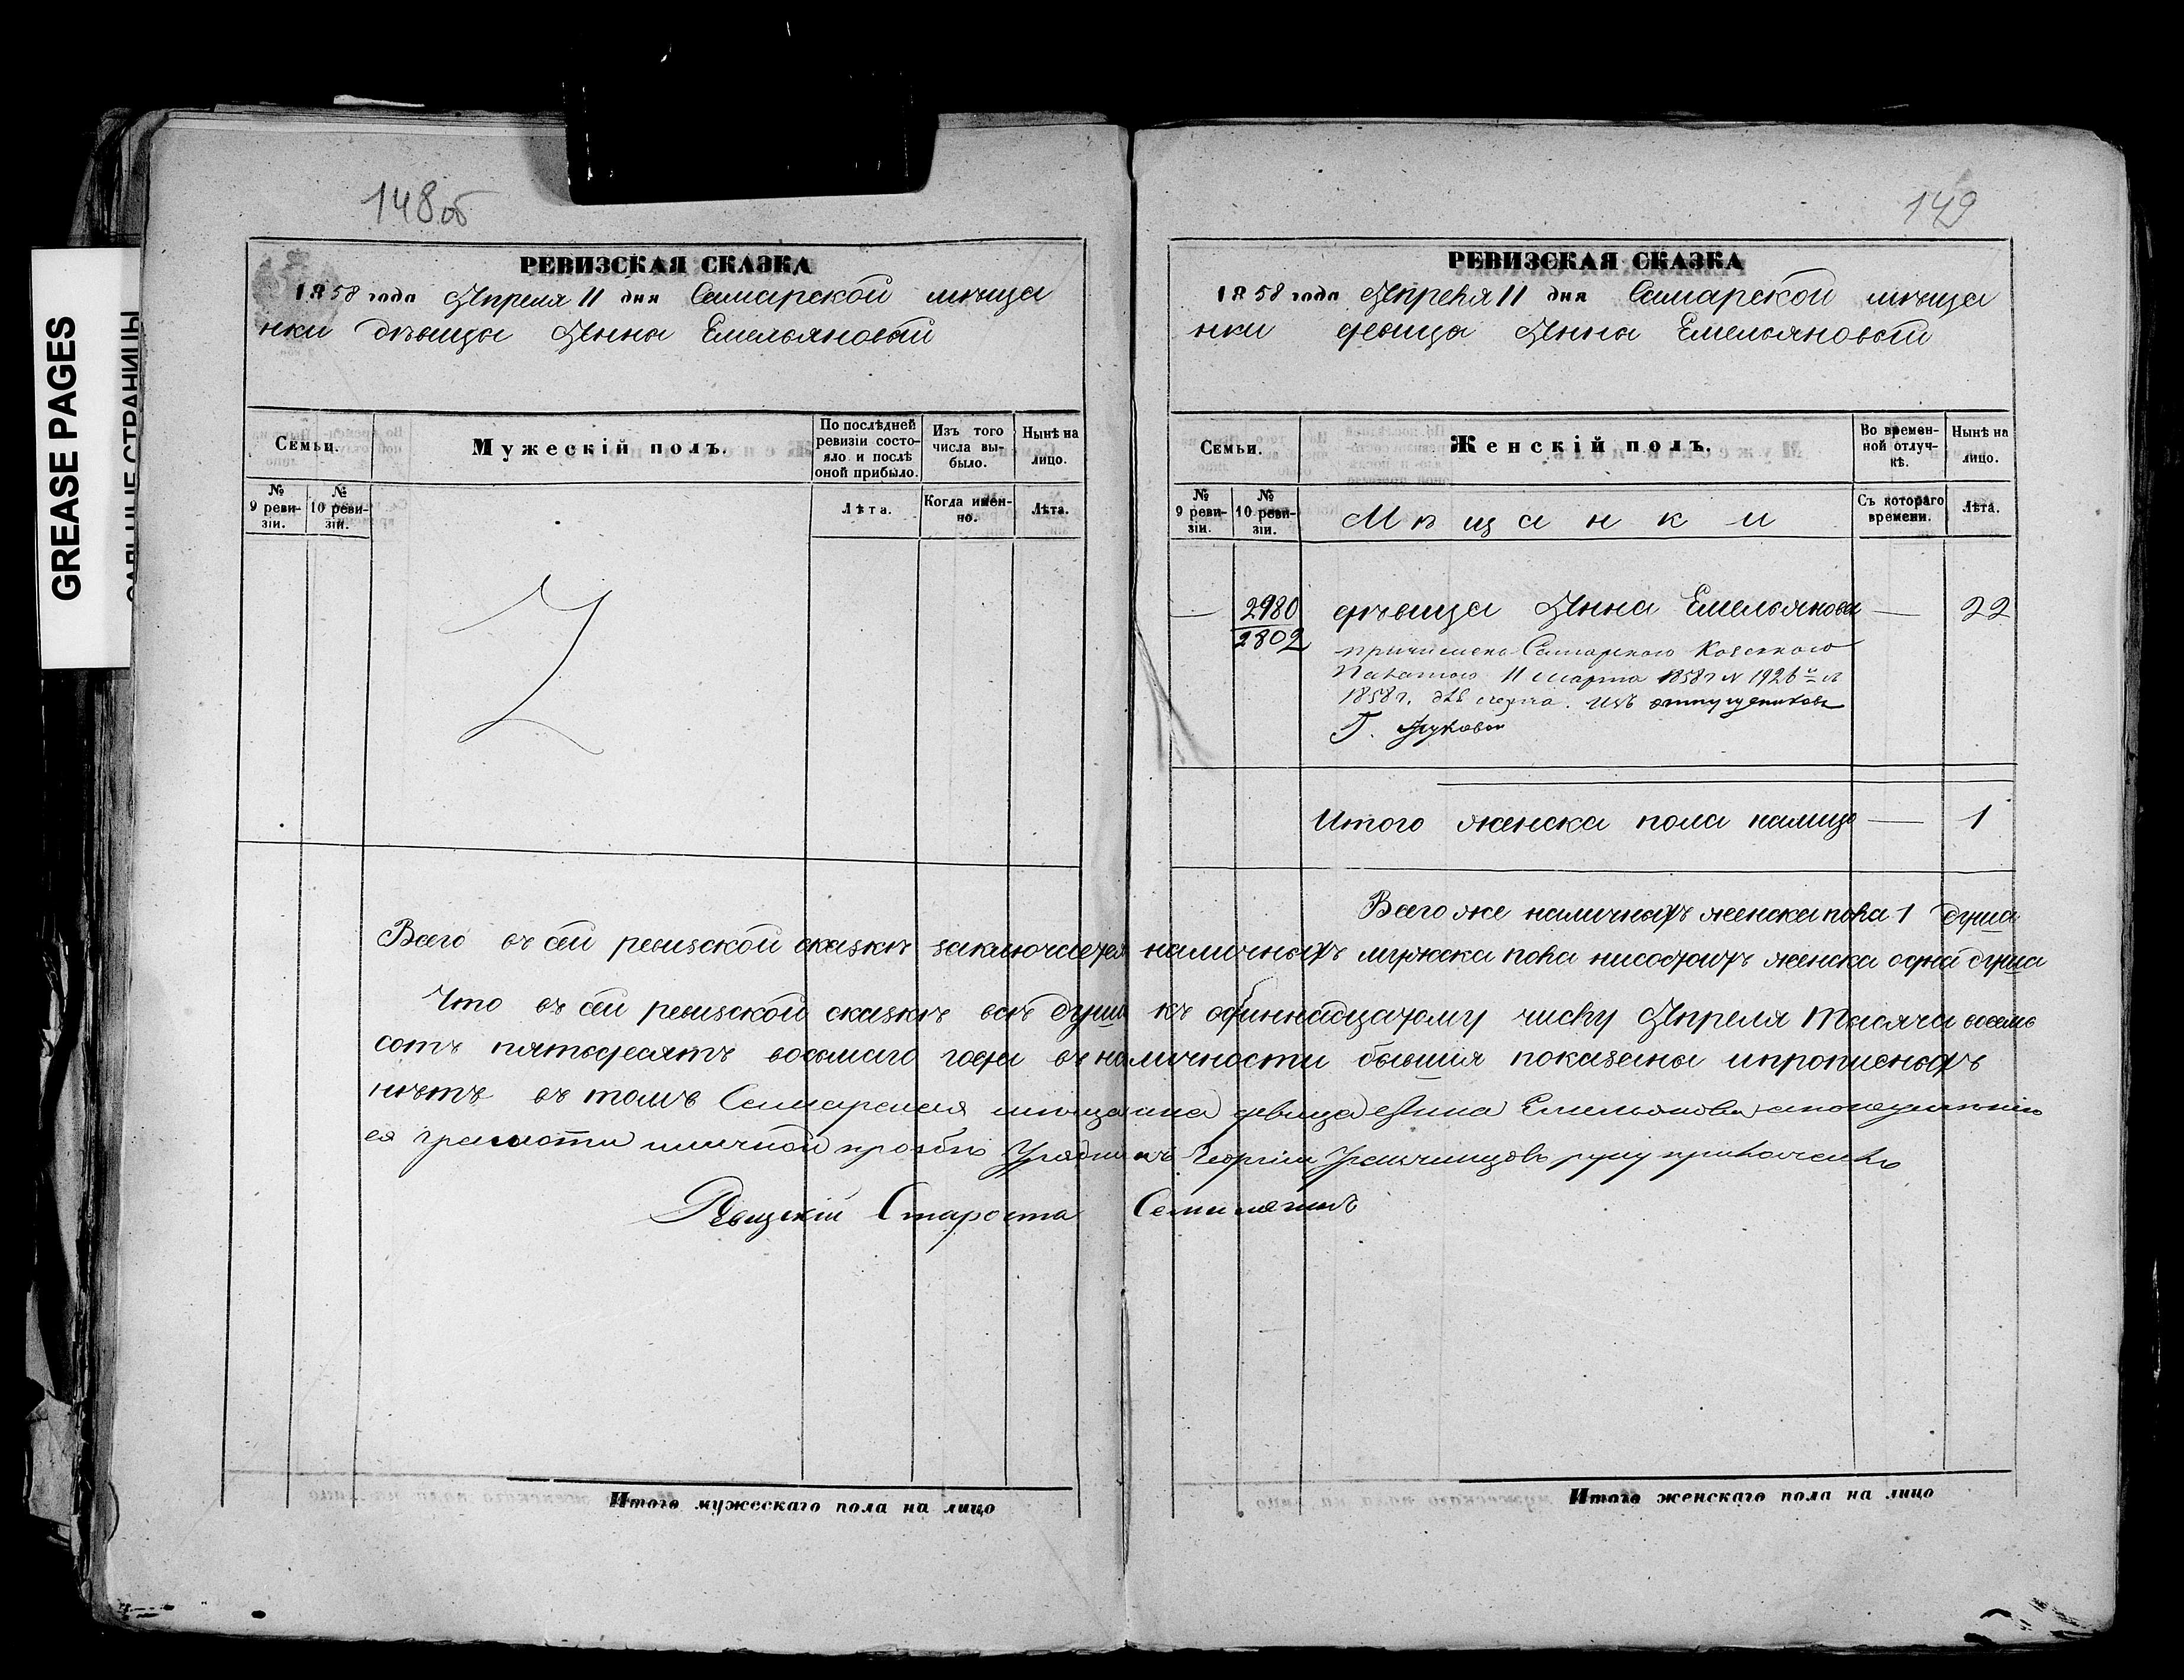 GREASE PAGES
САЛЬНЫЕ СТРАНИЦЫ
148об
РЕВИЗСКАЯ СКАЗКА
1858 года Апреля 11 дня Самарской мѣща
нки дѣвицы Анны Емельяновой
Семьи.
Мужескій полъ.
По послѣдней ревизіи состояло и послѣ оной прибыло.
Изъ того числа выбыло.
Нынѣ на лицо.
№ 9 ревизіи.
№ 10 ревизіи.
Лѣта.
Когда именно.
Лѣта.
Итого мужескаго пола на лицо
149
РЕВИЗСКАЯ СКАЗКА
1858 года Апреля 11 дня Самарской мѣща
нки девица Анна Емельяновой
Семьи.
Женскій полъ.
Во временной отлучкѣ.
Нынѣ на лицо.
№ 9 ревизіи.
№ 10 ревизіи.
Мѣщанки
Съ котораго времени.
Лѣта.
— 2980 дѣвица Анна Емельянова — 22
2802
причислена Самарскою Казенною
Палатою 11 марта 1858 г № 1926
1858 г. Изъ отпущениковъ
Г.
Итого женска пола налицо — 1
Всего же наличныхъ женска пола 1 душа
Всего въ сей ревизской сказкѣ заключается наличныхъ мужска пола нисостоитъ женска одна душа
Что въ сей ревизской сказкѣ всѣ души къ одиннадцатому числу Апреля тысяча восемь
сотъ пятьдесятъ восьмаго года въ наличности бывшия показаны ипрописныхъ
нѣтъ въ томъ Самарская мещанка девица Анна Емельянова
ея грамоти иличной прозбѣ Урядникъ Георгіи руку приложилъ
Староста
Итого женскаго пола на лицо